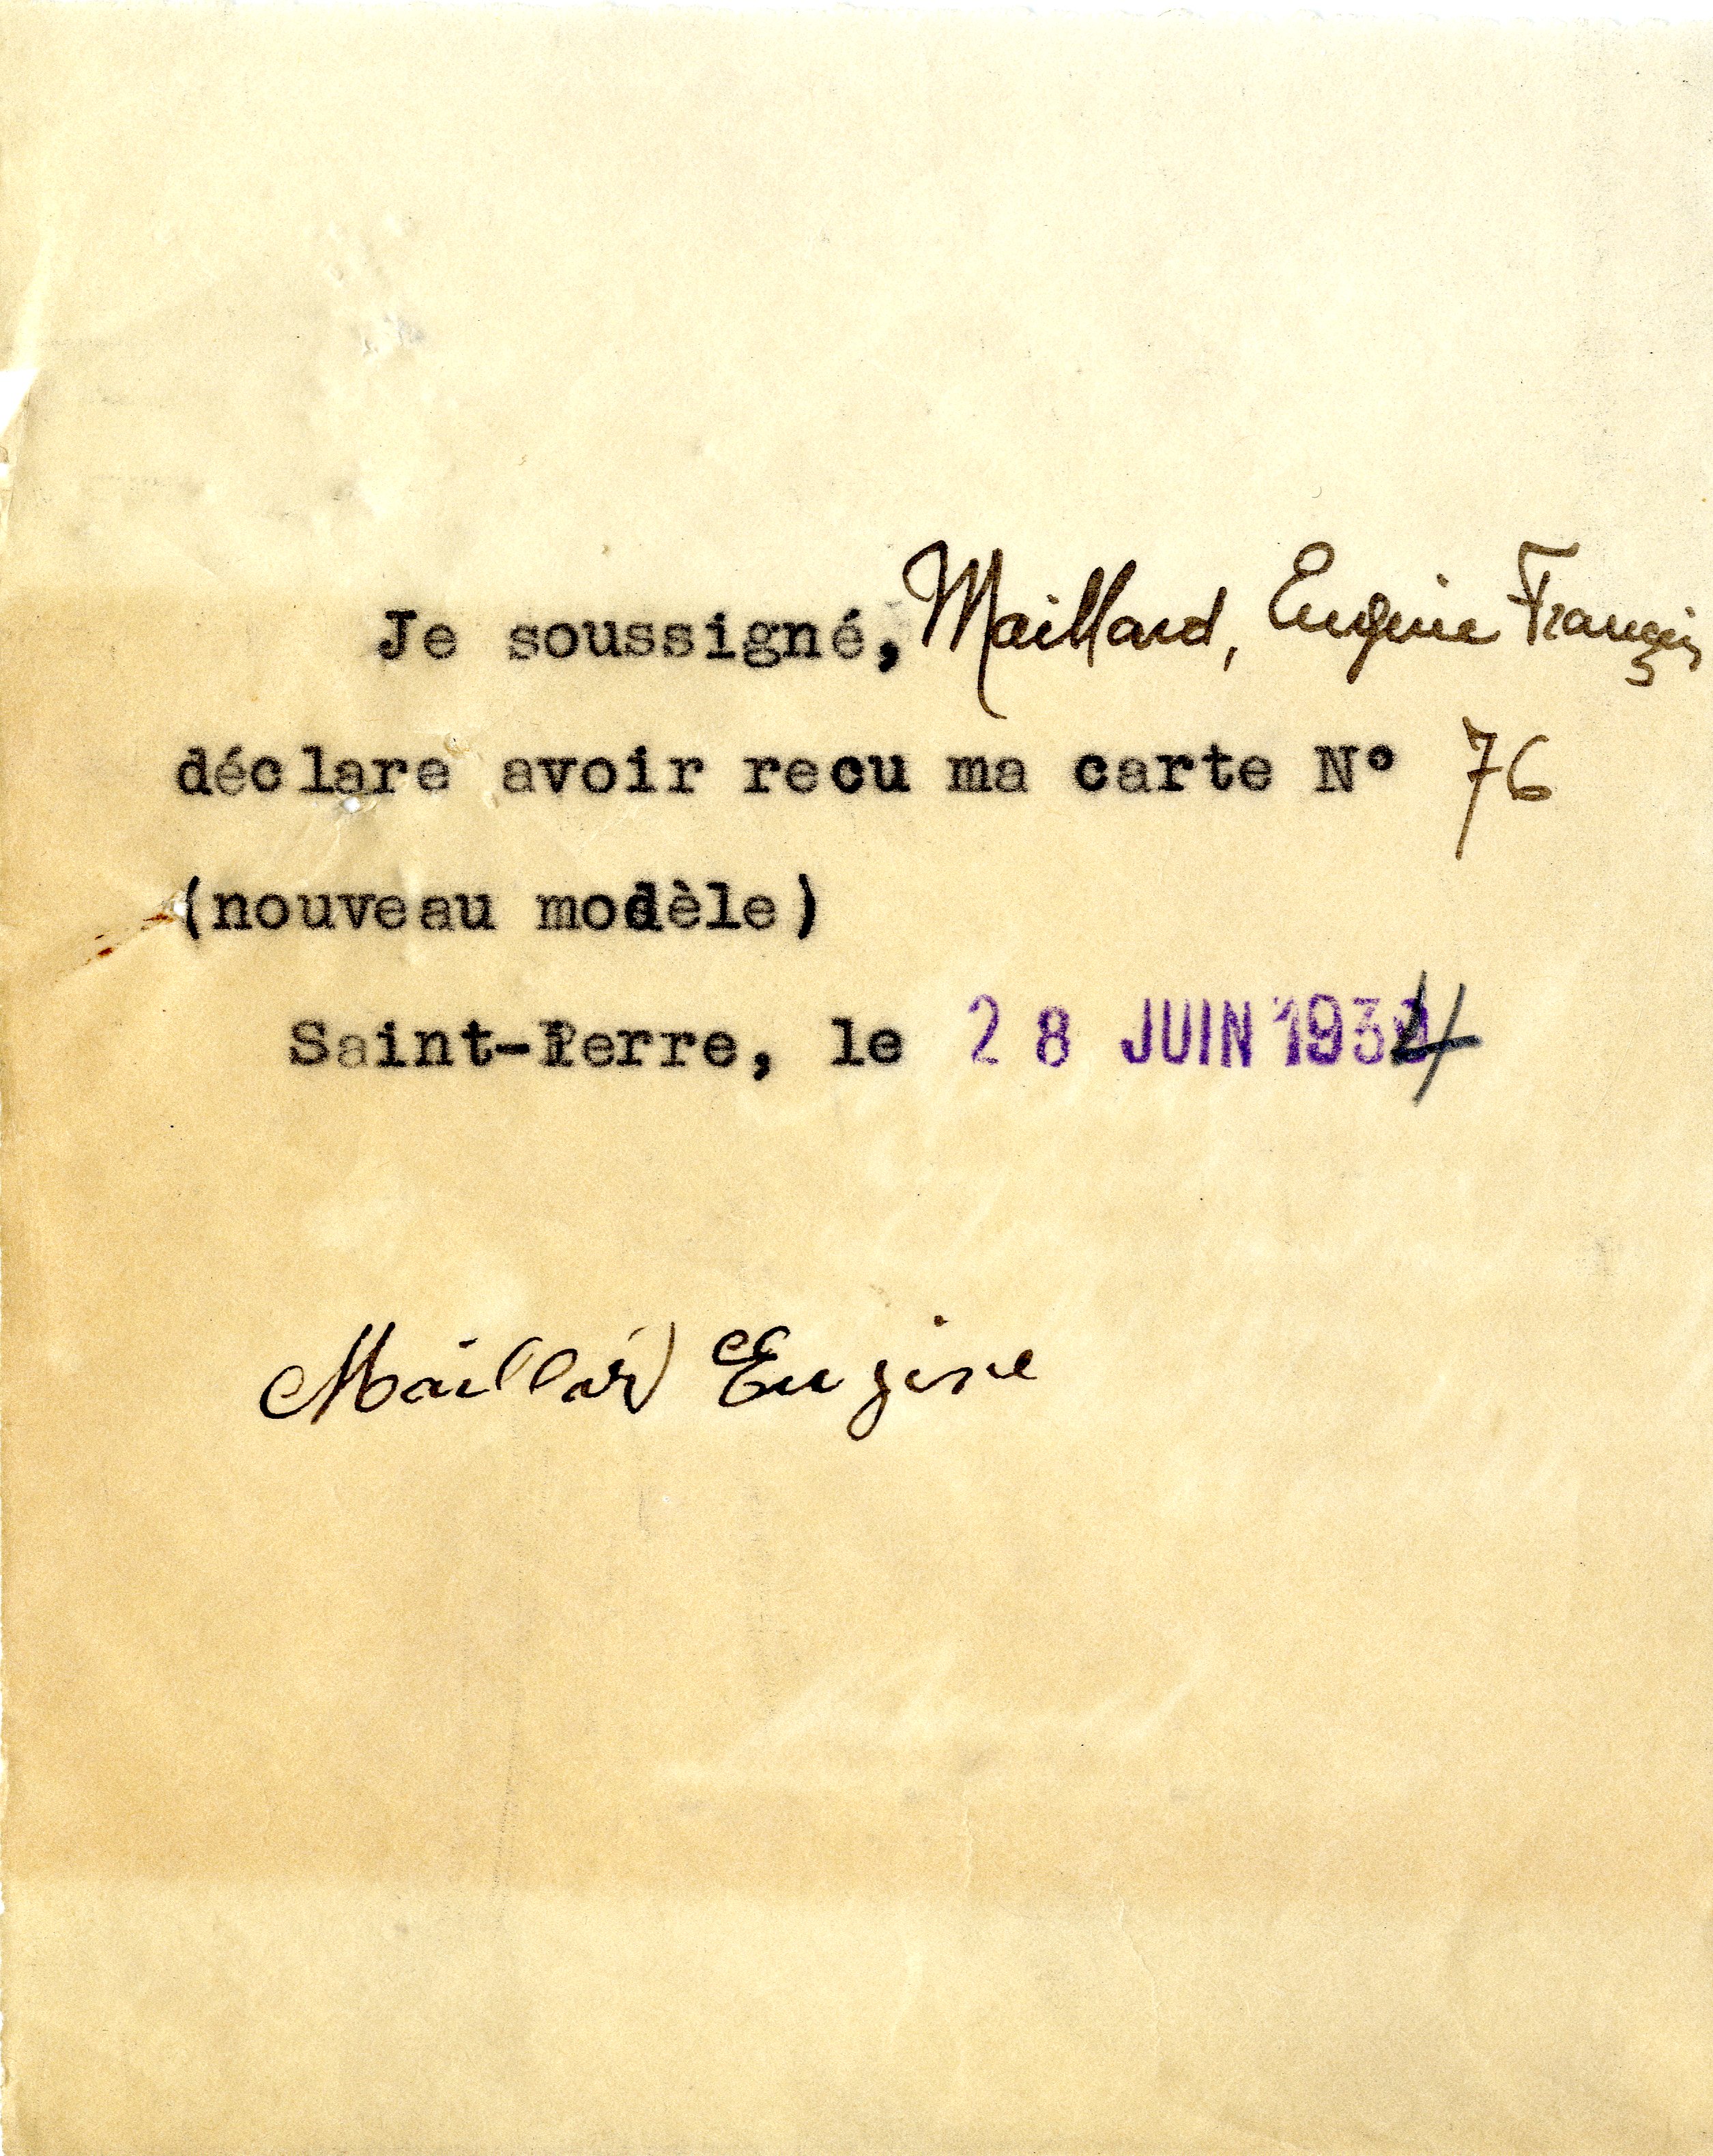 Je soussigné, Maillard, Eugène François
déclare avoir recu ma carte N° 76
(nouveau modèle)
Saint-Pierre, le 28 JUIN 1934
Maillard Eugine